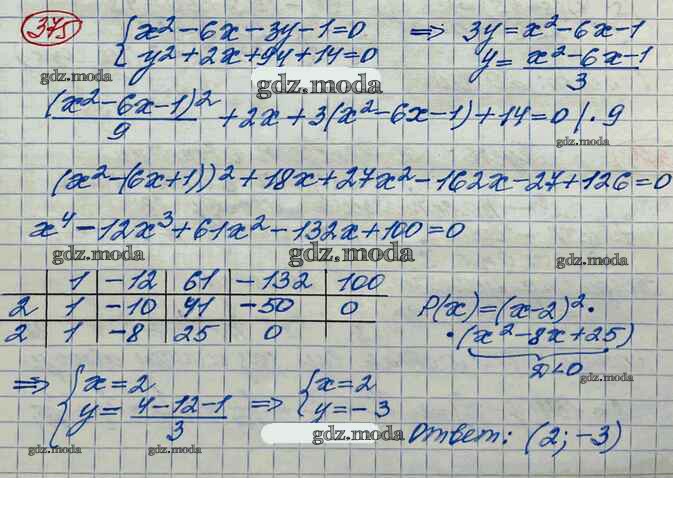 375
x² - 6x - 3y - 1 = 0 ⇒ 3y = x² - 6x - 1
y² + 2x + 9y + 14 = 0 y = (x² - 6x - 1)/3
gdz.moda gdz.moda
(x² - 6x - 1)²/9 + 2x + 3(x² - 6x - 1) + 14 = 0 | · 9
gdz.moda
(x² - (6x + 1))² + 18x + 27x² - 162x - 27 + 126 = 0
x⁴ - 12x³ + 61x² - 132x + 100 = 0
gdz.moda gdz.moda gdz.moda
1 -12 61 -132 100
2 1 -10 41 -50 0
2 1 -8 25 0
P(x) = (x - 2)² ·
· (x² - 8x + 25)
D < 0
gdz.moda gdz.moda
⇒ { x = 2 ⇒ { x = 2
y = (4 - 12 - 1)/3 y = -3
Ответ: (2; -3)
gdz.moda
gdz.moda gdz.moda gdz.moda